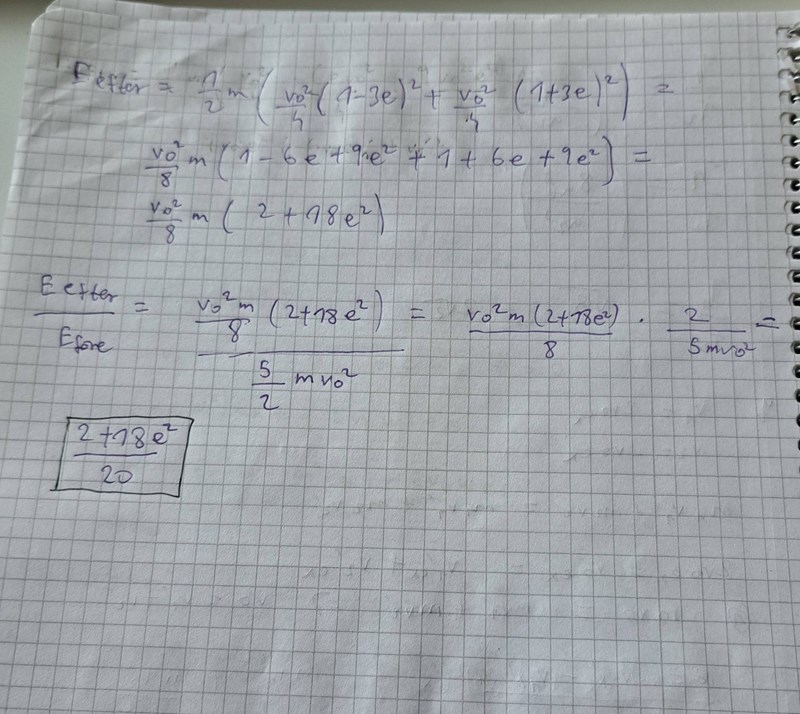 E efter = 1/2 m ( v₀²/4 (1-3e)² + v₀²/4 (1+3e)² ) =
v₀²/8 m ( 1 - 6e + 9e² + 1 + 6e + 9e² ) =
v₀²/8 m ( 2 + 18e² )
E efter / E före = v₀²m/8 (2+18e²) / 5/2 mv₀² = v₀²m (2+18e²) / 8 · 2 / 5mv₀² =
2+18e² / 20